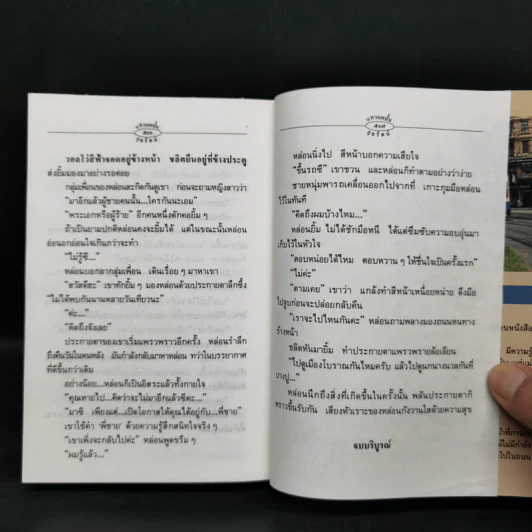 วอลโว่สีฟ้าจอดอยู่ข้างหน้า ชลิตยืนอยู่ที่ข้างประตู
ส่งยิ้มมองมาอย่างรอคอย
กลุ่มเพื่อนของหล่อนสะกิดกันดูเขา ก่อนจะถามหญิงสาวว่า
“มาอีกแล้วผู้ชายคนนั้น...ใครกันนะเอม”
“พระเอกหรือผู้ร้าย” อีกคนหนึ่งดักคอยิ้ม ๆ
ถ้าเป็นยามปกติหล่อนคงจะยิ้มได้ แต่ในขณะนั้นหล่อน
อ่อนอกอ่อนใจเกินกว่าจะทำ
“ไม่รู้ซี...”
หล่อนบอกลากลุ่มเพื่อน เดินเรื่อย ๆ มาหาเขา
“สวัสดีฮะ” เขาทักยิ้ม ๆ มองหล่อนด้วยประกายตาลึกซึ้ง
“ไม่ได้พบกันนานหลายวันเทียวนะ”
“ค่ะ...”
“คิดถึงจังเลย”
ประกายตาของเขาเริ่มแพรวพราวอีกครั้ง หล่อนรำลึก
ถึงคืนวันในหนหลัง มันกำลังกลับมาหาหล่อน ทว่าในบรรยากาศ
ที่ดีขึ้นกว่าเดิม
อย่างน้อย...หล่อนก็เป็นอิสระแล้วทั้งกายใจ
“คุณหายไป...คิดว่าจะไม่มาอีกแล้วซีคะ...”
“มาซิ เพียงแต่...เปิดโอกาสให้คุณได้อยู่กับ...พี่ชาย”
เขาใช้คำ ‘พี่ชาย’ ด้วยความรู้สึกสนิทใจจริง ๆ
“เขาเพิ่งจะกลับไปค่ะ” หล่อนพูดขรึม ๆ
“ผมรู้แล้ว...”
หล่อนนิ่งไป สีหน้าบอกความเสียใจ
“ขึ้นรถซี” เขาชวน และหล่อนก็ทำตามอย่างว่าง่าย
ชายหนุ่มพารถเคลื่อนออกไปจากที่ เกาะกุมมือหล่อน
ไว้ในทันที
“คิดถึงผมบ้างไหม...”
หล่อนยิ้ม ไม่ได้ชักมือหนี ได้แต่ซึมซับความอบอุ่นมา
เก็บไว้ในหัวใจ
“ตอบหน่อยได้ไหม ตอบหวาน ๆ ให้ชื่นใจเป็นครั้งแรก”
“ไม่ค่ะ”
“ตามเคย” เขาว่า แกล้งทำสีหน้าเหนื่อยหน่าย ดึงมือ
ไปจูบก่อนจะปล่อยกลับคืน
“เราจะไปไหนกันคะ” หล่อนถามพลางมองถนนหนทาง
ข้างหน้า
ชลิตหันมายิ้ม ทำประกายตาแพรวพรายล้อเลียน
“ไปดูเมืองโบราณกันไหมครับ แล้วไปดูนกนางนวลกันที่
บางปู...”
หล่อนนึกถึงสิ่งที่เกิดขึ้นในครั้งนั้น พลันประกายตาก็
พราวขึ้นรับกัน เสียงหัวเราะของหล่อนกังวานใสด้วยความสุข
จบบริบูรณ์